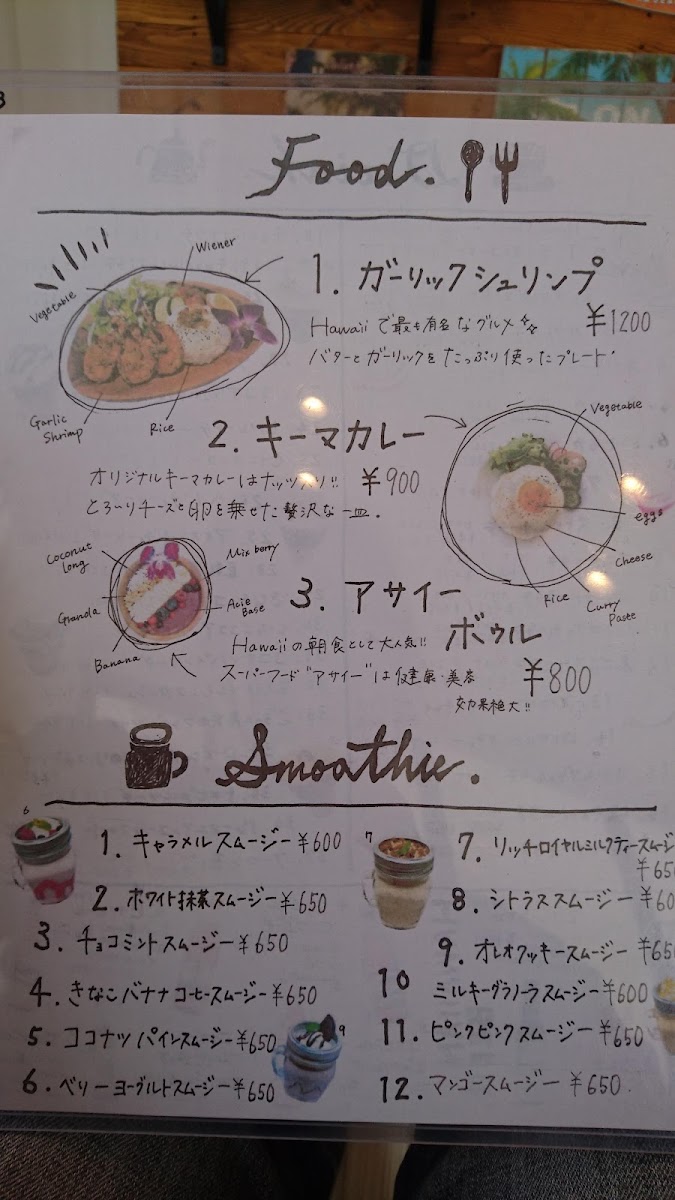 Food.
Wiener
Vegetable
Garlic
Shrimp
Rice
1. ガーリックシュリンプ
Hawaiiで最も有名なグルメ ¥1200
バターとガーリックをたっぷり使ったプレート
2. キーマカレー
オリジナルキーマカレーはナッツ入り!! ¥900
とろ〜りチーズと卵を乗せた贅沢な一皿.
Vegetable
eggs
Cheese
Curry
Paste
Rice
Coconut
long
Mix berry
Granola
Acie
Base
Banana
3. アサイー
ボウル
Hawaiiの朝食として大人気!!
スーパーフード"アサイー"は健康・美容 ¥800
効果絶大!!
Smoothie.
6
1. キャラメルスムージー ¥600
2. ホワイト抹茶スムージー ¥650
3. チョコミントスムージー ¥650
4. きなこバナナコーヒースムージー ¥650
5. ココナツパインスムージー ¥650
6. ベリーヨーグルトスムージー ¥650
9
7
7. リッチロイヤルミルクティースムージ
¥65
8. シトラススムージー ¥60
9. オレオクッキースムージー ¥65
10 ミルキーグラノーラスムージー ¥600
11. ピンクピンクスムージー ¥650
12. マンゴースムージー ¥650